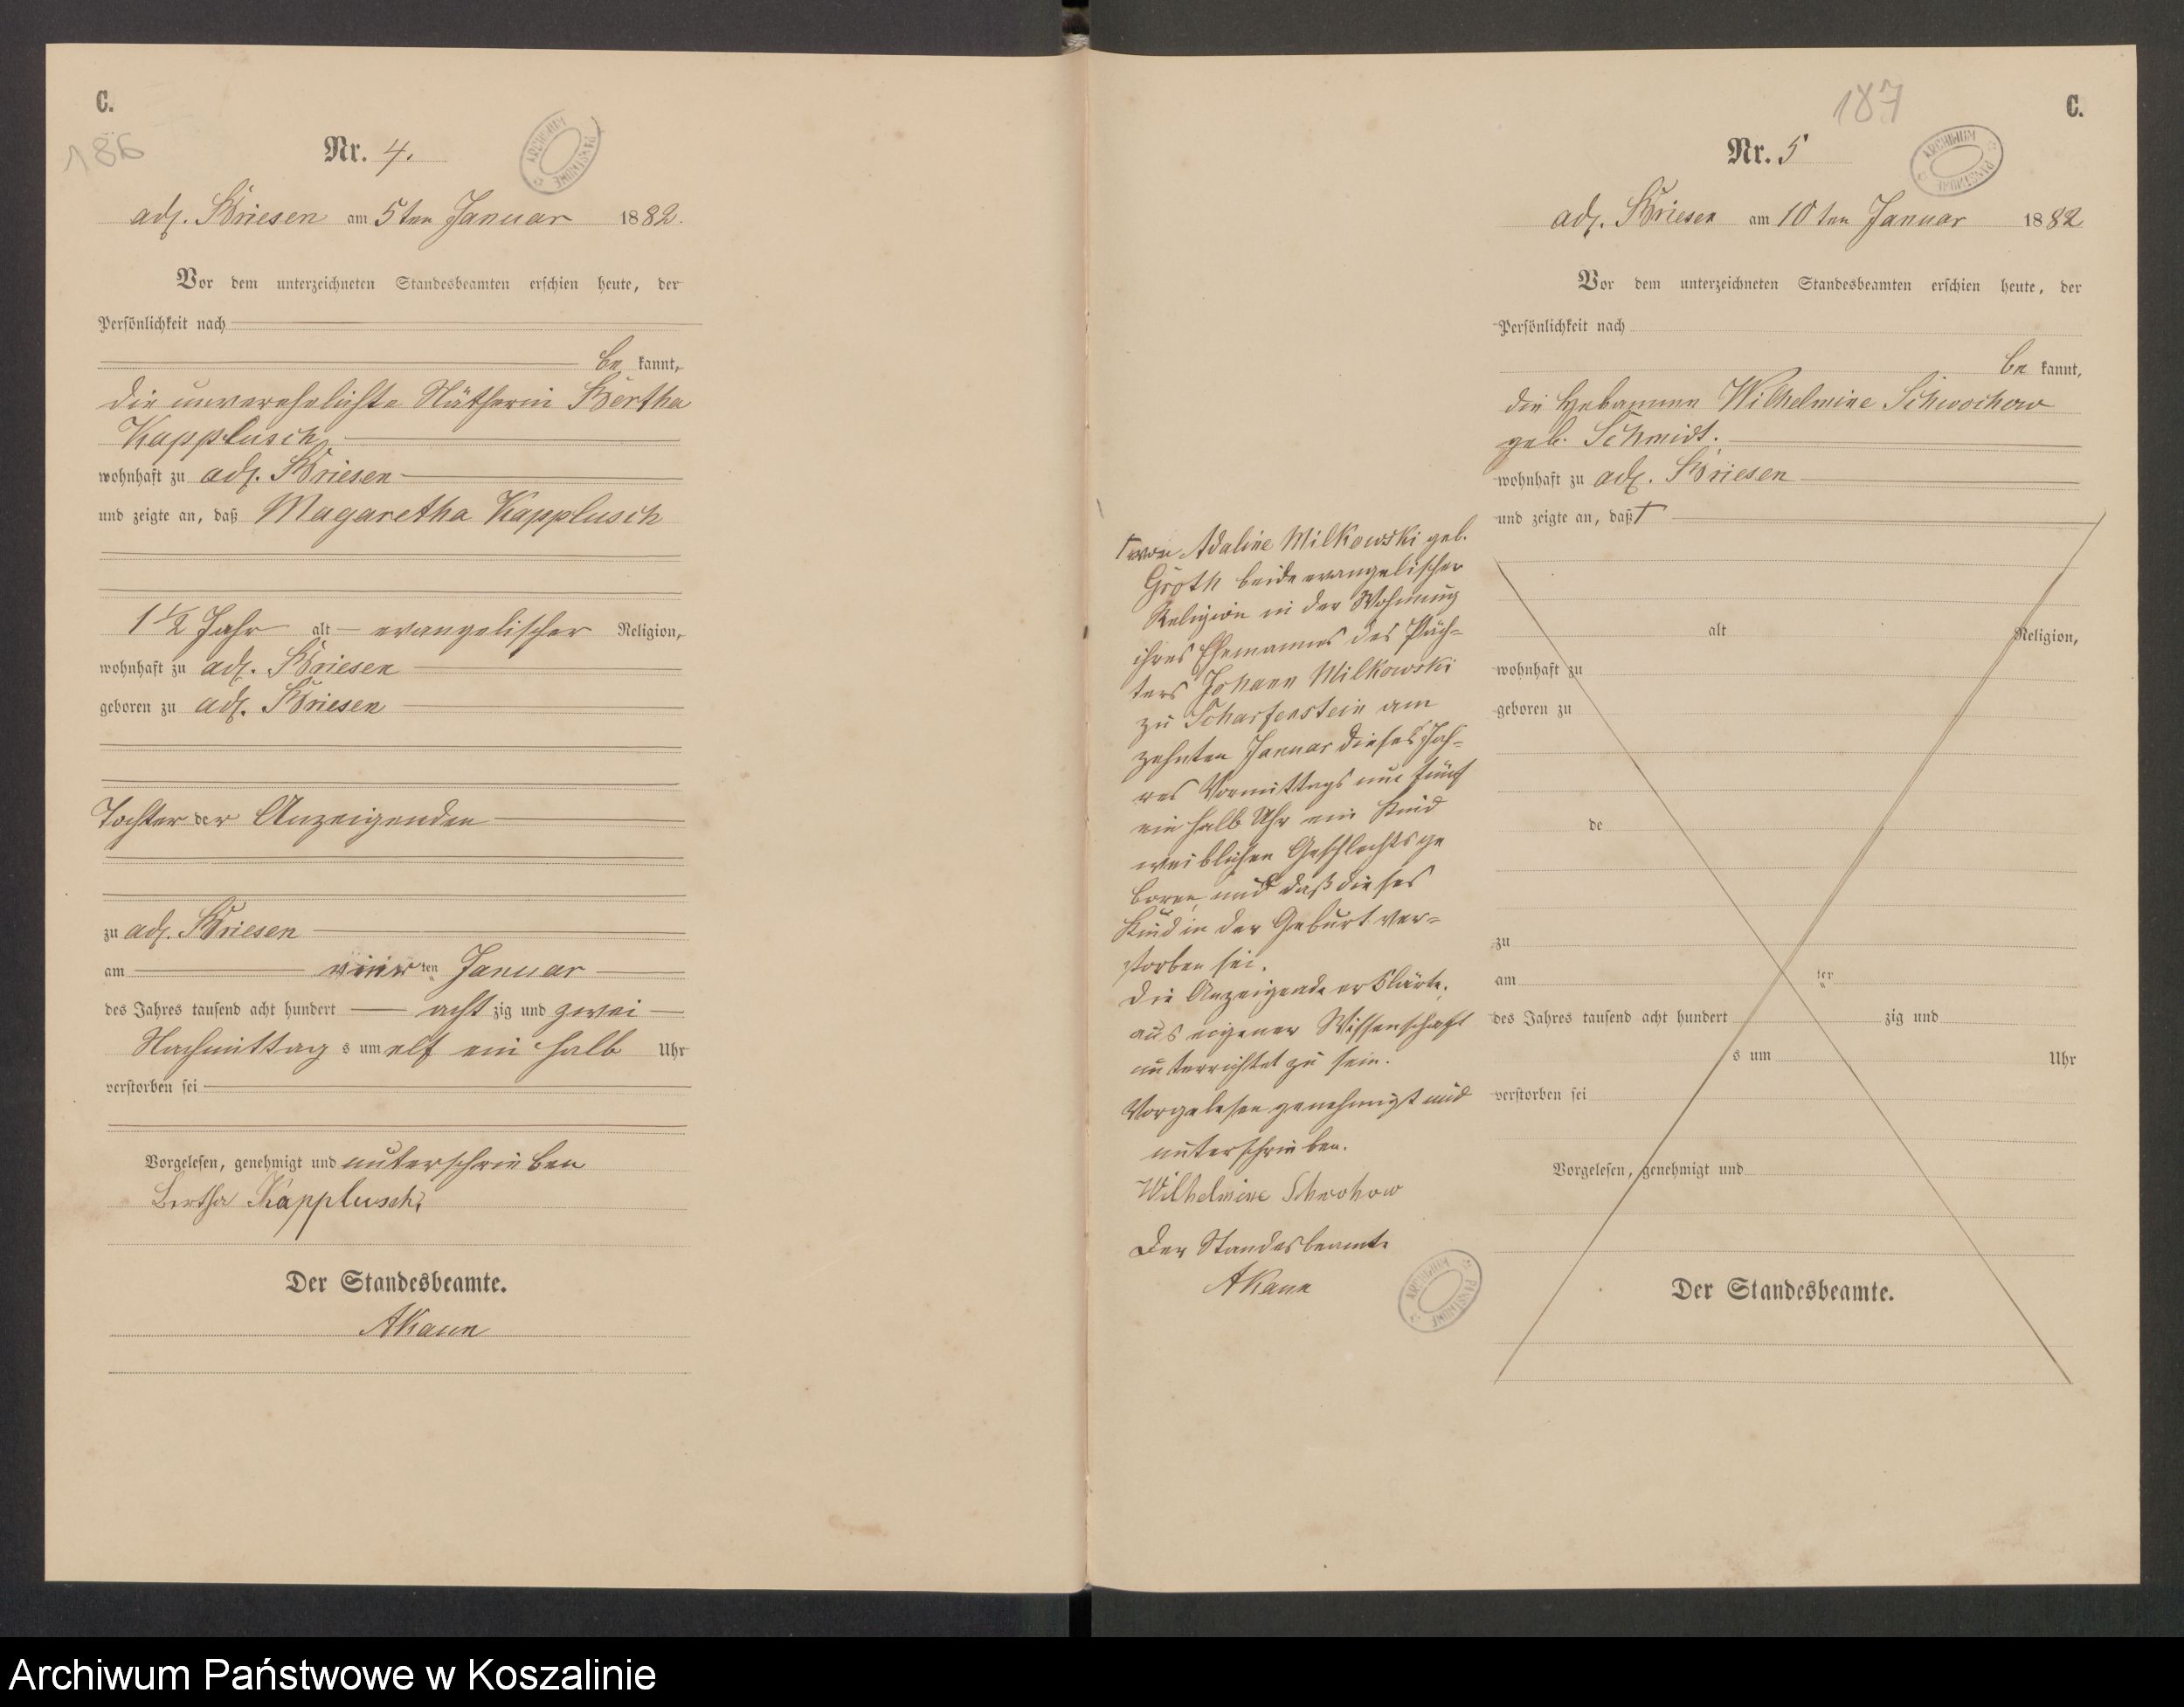 C.
186
Nr. 4.
ARCHIWUM PAŃSTWOWE
adl. Briesen am 5ten Januar 1882.
Vor dem unterzeichneten Standesbeamten erschien heute, der
Persönlichkeit nach
be kannt,
die unverehelichte Nätherin Bertha
Kapplusch
wohnhaft zu adl. Briesen
und zeigte an, daß Magaretha Kapplusch
1 1/2 Jahr alt evangelischer Religion,
wohnhaft zu adl. Briesen
geboren zu adl. Briesen
Tochter der Anzeigenden
zu adl. Briesen
am vierten Januar
des Jahres tausend acht hundert achtzig und zwei
Nachmittags um elf ein halb Uhr
verstorben sei
Vorgelesen, genehmigt und unterschrieben
Bertha Kapplusch
Der Standesbeamte.
AKann
187
C.
Nr. 5
ARCHIWUM PAŃSTWOWE
adl. Briesen am 10ten Januar 1882
Vor dem unterzeichneten Standesbeamten erschien heute, der
Persönlichkeit nach
be kannt,
die Hebamme Wilhelmine Schwochow
geb. Schmidt.
wohnhaft zu adl. Briesen
und zeigte an, daß †
alt Religion,
wohnhaft zu
geboren zu
de
zu
am ten
des Jahres tausend acht hundert zig und
s um Uhr
verstorben sei
Vorgelesen, genehmigt und
Der Standesbeamte.
† von Adaline Milkowski geb.
Groth beide evangelischer
Religion in der Wohnung
ihres Ehemannes des Päch-
ters Johann Milkowski
zu Scharfenstein am
zehnten Januar dieses Jah-
res Vormittags um fünf
ein halb Uhr ein Kind
weiblichen Geschlechts ge
boren und daß dieses
Kind in der Geburt ver-
storben sei.
Die Anzeigende erklärte,
aus eigener Wissenschaft
unterrichtet zu sein.
Vorgelesen genehmigt und
unterschrieben.
Wilhelmine Schwohow
Der Standesbeamte
AKann
ARCHIWUM PAŃSTWOWE
Archiwum Państwowe w Koszalinie